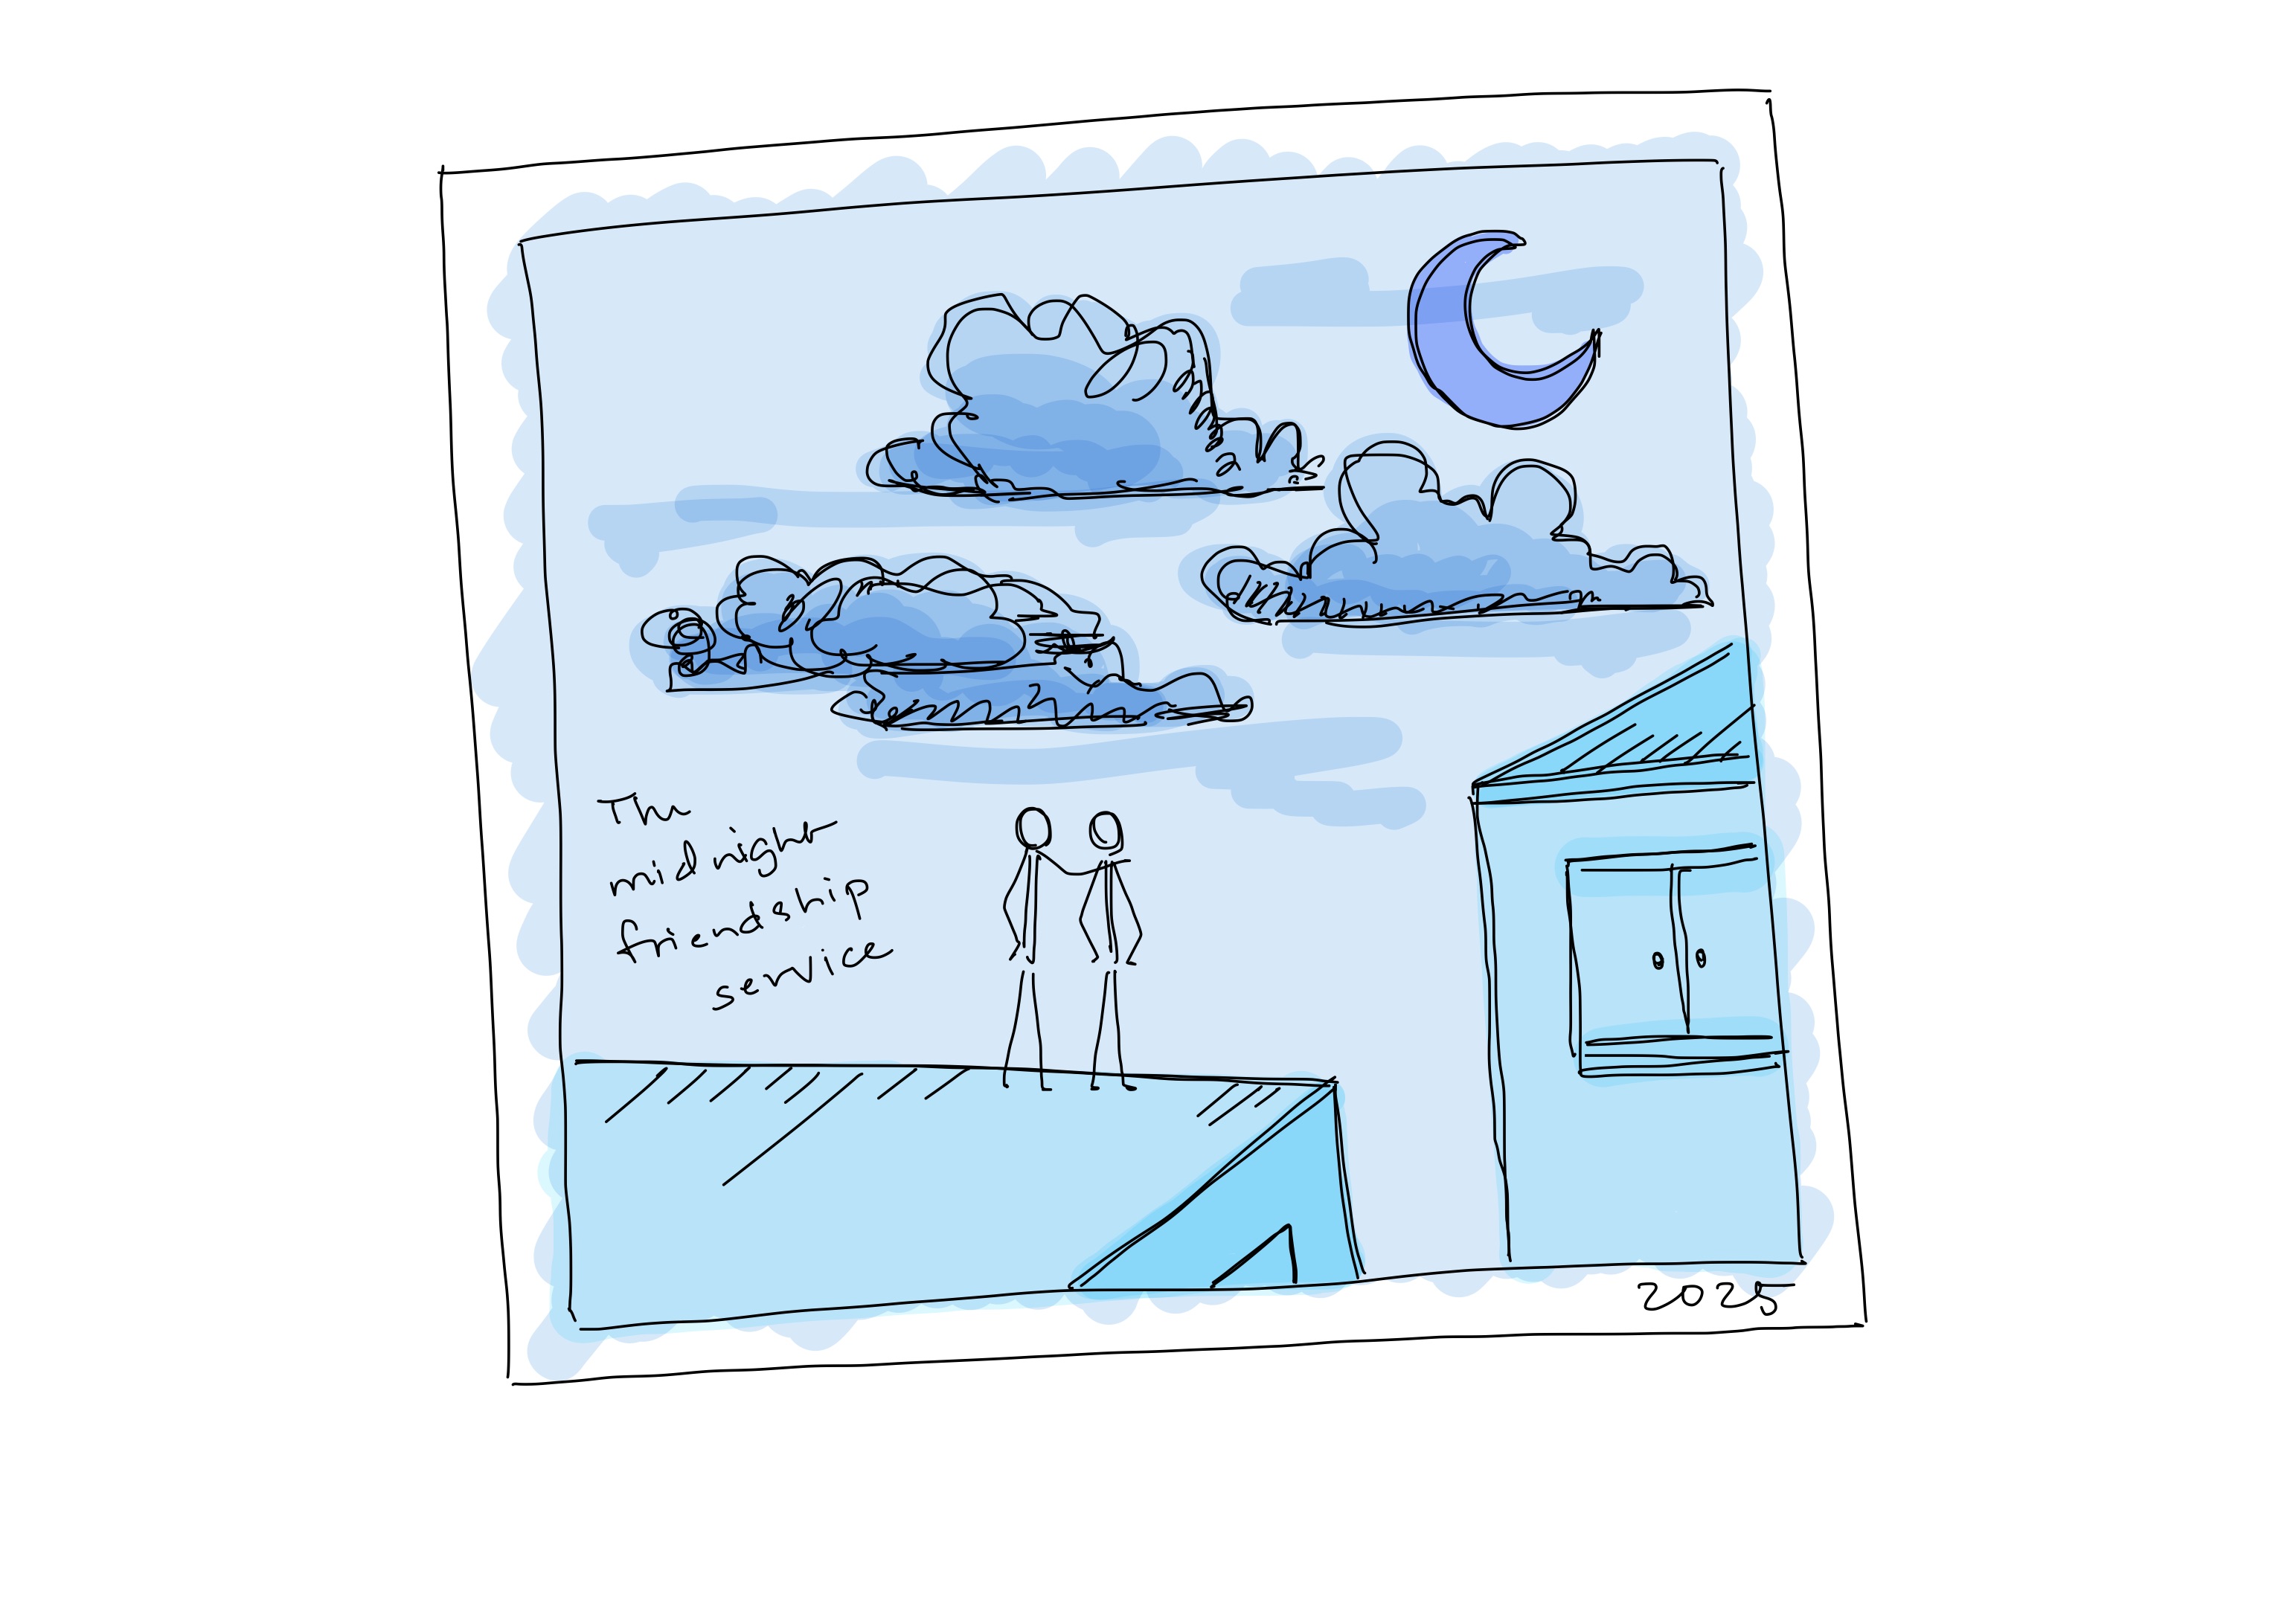 The
midnight
friendship
service
2025